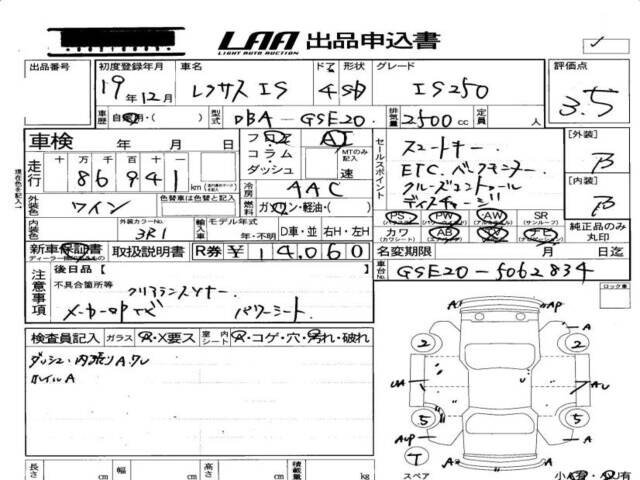 LAA 出品申込書
LIGHT AUTO AUCTION
出品番号 初度登録年月 車名 ドア 形状 グレード 評価点
19年12月 レクサスIS 4 SD IS250 3.5
車歴 自家用・( ) 型式 DBA-GSE20 排気量 2500cc 定員 人
車検 年 月 日 フロア AT セールスポイント スマートキー [外装] B
コラム・ダッシュ MTのみ記入 速 ETC. バックモニター
走行 十 万 千 百 十 一
86941 km 冷房 AAC クルーズコントロール [内装] B
燃料 ガソリン・軽油・( ) ディスチャージ
外装色 ワイン 色替車は色替と記入
PS PW AW SR (サンルーフ) 純正品のみ丸印
内装色 外装カラーNo. 3R1 輸入車 モデル年式 年・不明 D車・並 右H・左H
カワ (カワシート) AB TV ナビ
新車保証書 取扱説明書 R券 ¥14,060 名変期限 月 日迄
車台No. GSE20-5062834
注意事項 後日品【 】 ロック車
不具合箇所等 クリアランスソナー.
メーカーOPナビ パワーシート
検査員記入 ガラス A・X要ス 室内シート A・コゲ・穴・汚れ・破れ
ダッシュ・内張りA.クレ
ホイルA
A A
2 2
UA AU
5 5
AUP A
T
A
スペア 小A有・小U有
長さ cm 幅 cm 高さ cm 積載量 kg
現在色を記入↑